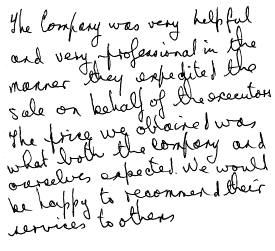 The Company was very helpful
and very professional in the
manner they expedited the
sale on behalf of the executors
The price we obtained was
what both the company and
ourselves expected. We would
be happy to recommend their
services to others